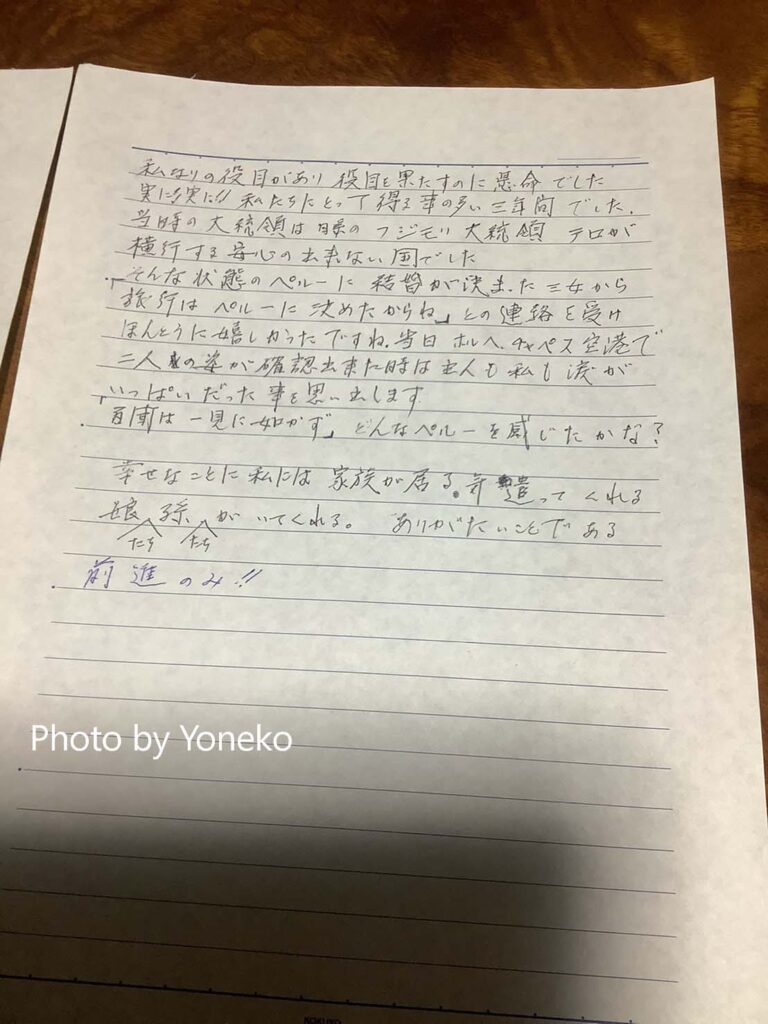 私なりの役目があり 役目を果たすのに懸命でした
実に!実に!! 私たちにとって得る事の多い三年間でした.
当時の大統領は日系のフジモリ大統領 テロが
横行する安心の出来ない国でした
そんな状態のペルーに結婚が決まった三女から
「旅行はペルーに決めたからね」との連絡を受け
ほんとうに嬉しかったですね.当日ホルヘ.チャベス空港で
二人の姿が確認出来た時は主人も私も涙が
いっぱいだった事を思い出します
「百聞は一見に如かず」どんなペルーを感じたかな?
幸せなことに私には家族が居る。気遣ってくれる
娘たち孫たちがいてくれる。 ありがたいことである
前進のみ!!
Photo by Yoneko
KOKUYO